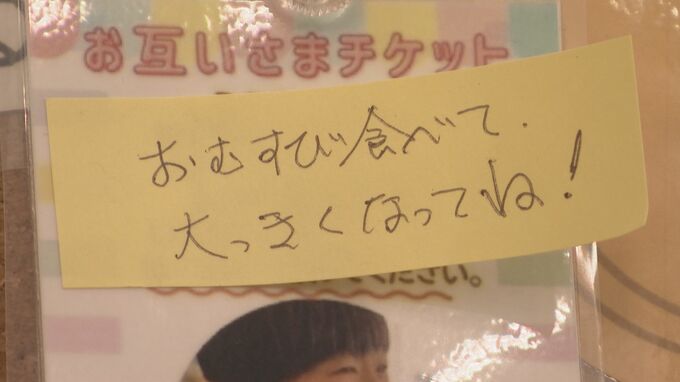 お互いさまチケット
おむすび食べて、
大っきくなってね!
ください。